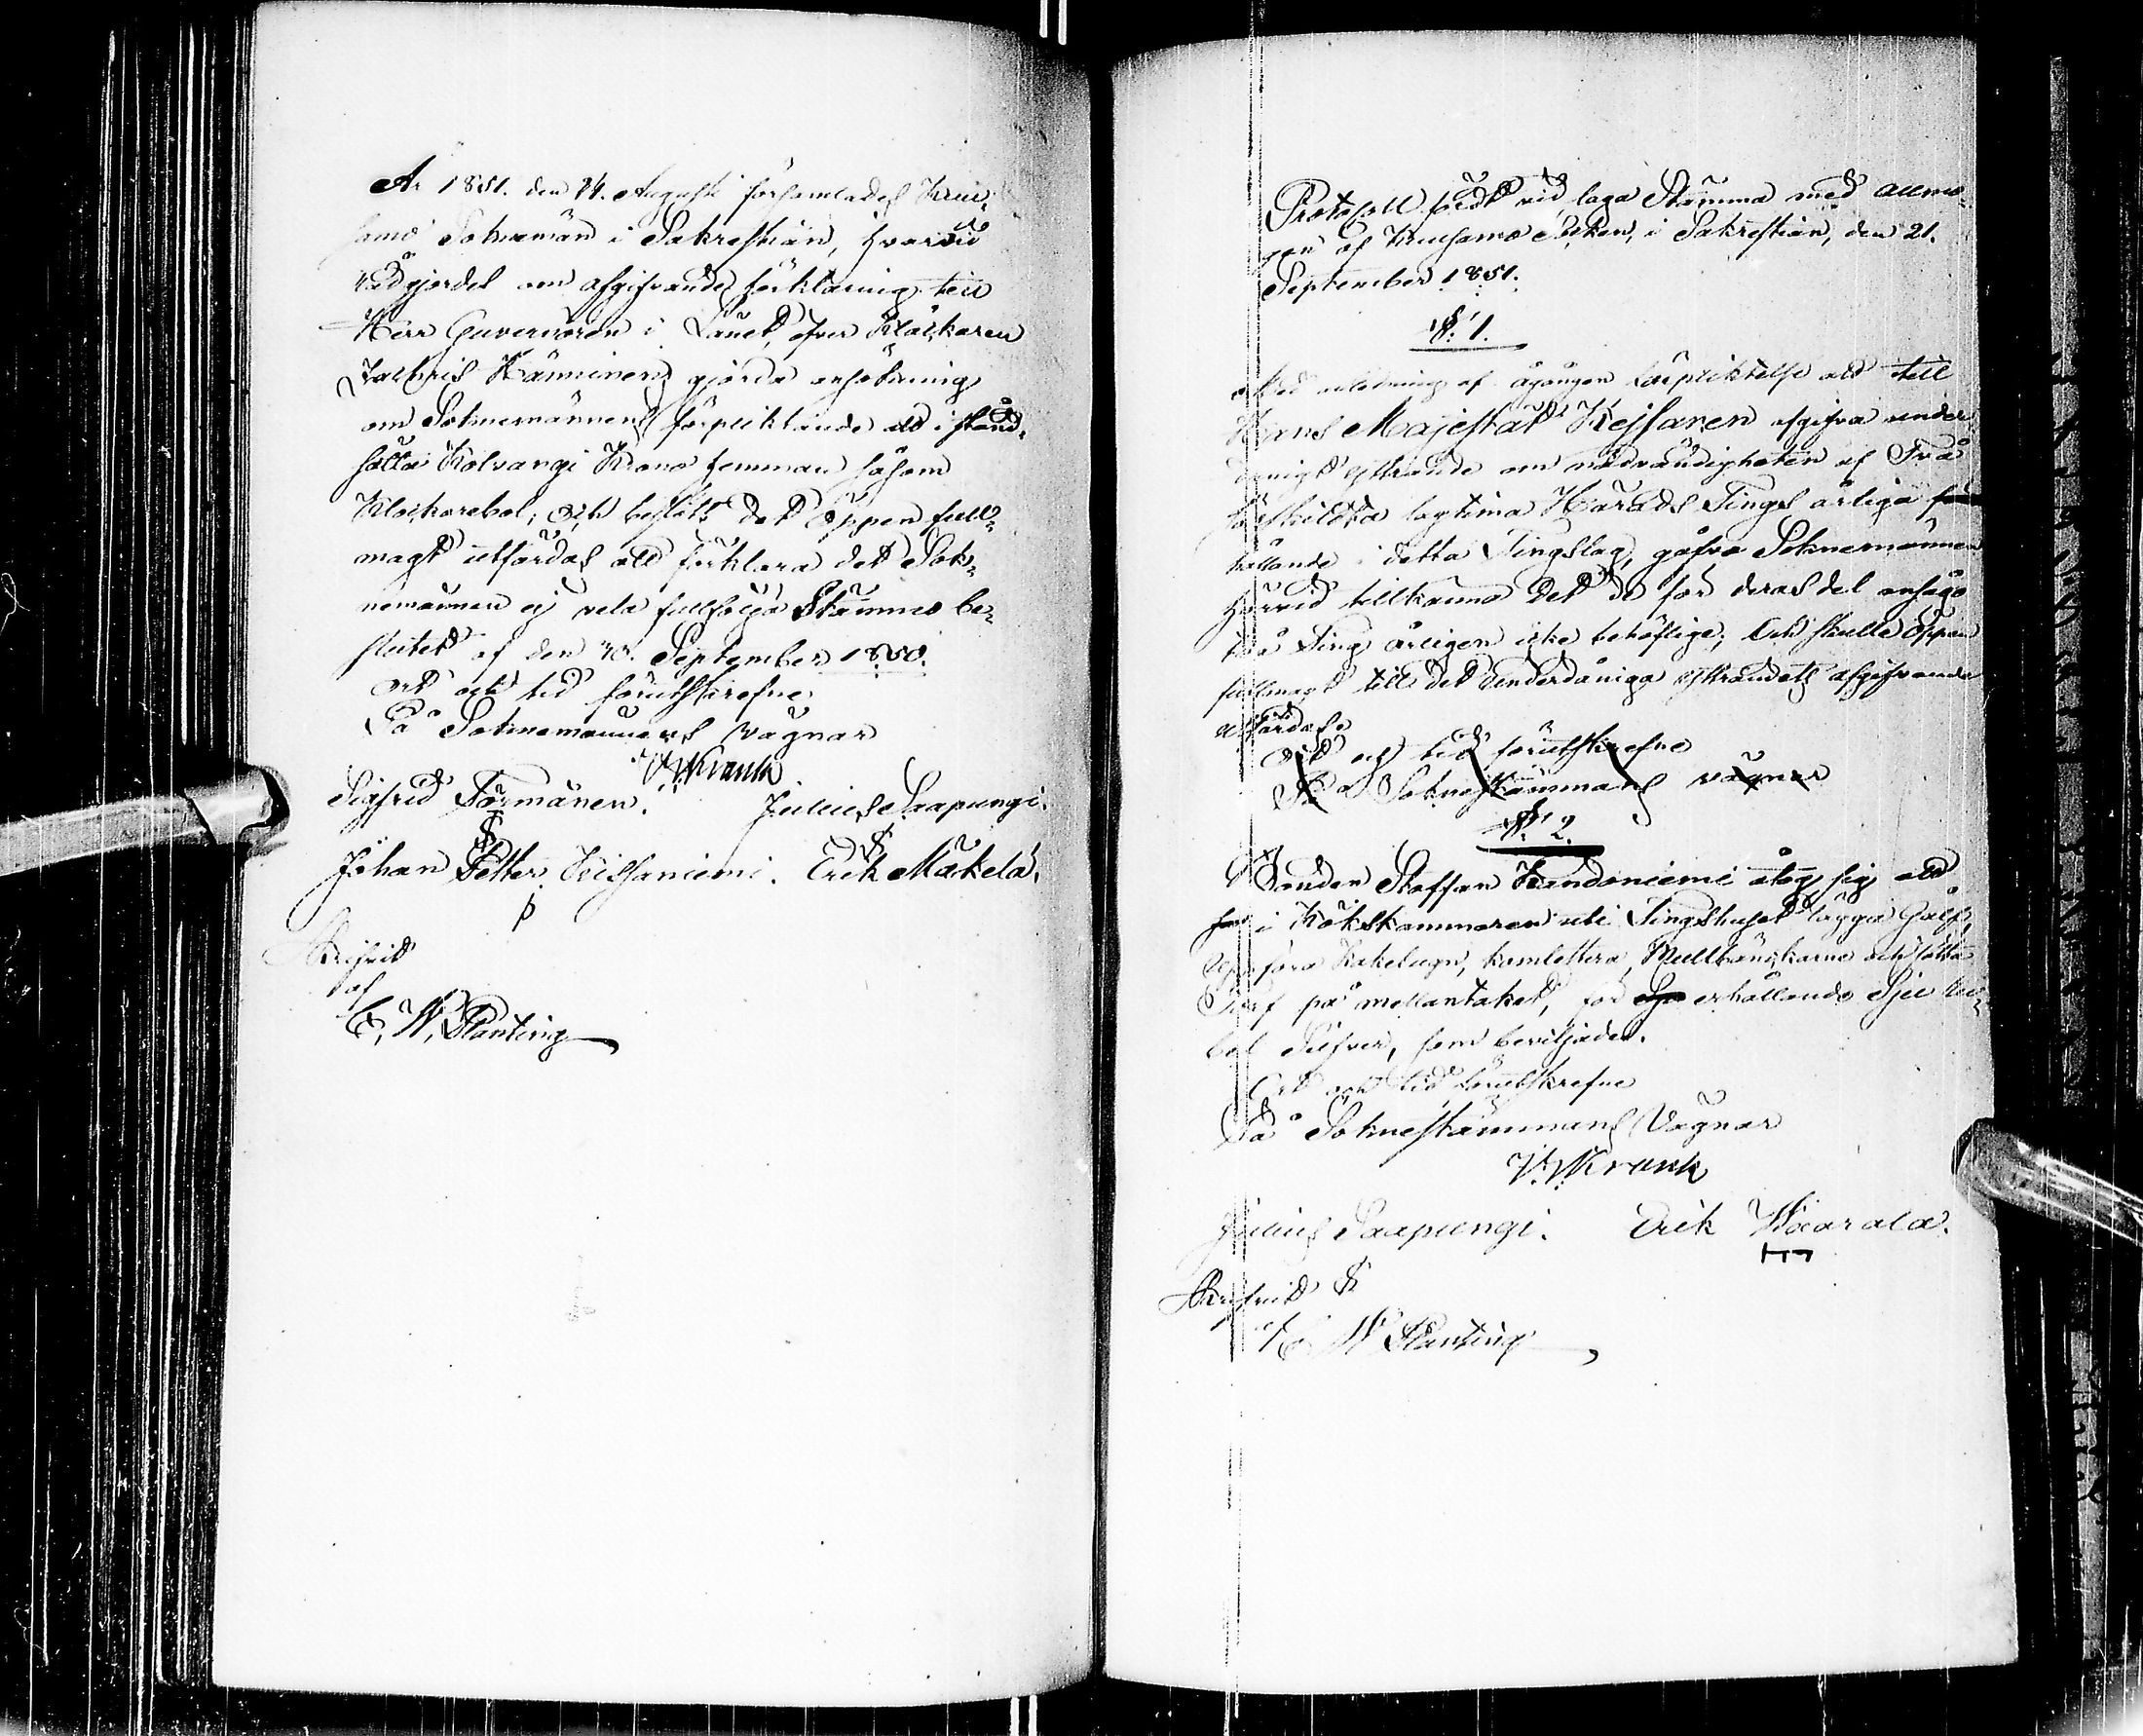 År 1851. den 24. Augusti församlades Kuu-
samo Sokmemän i Sakrestian, hvarvid
rådgjordes om afgifvande förklaring till
Herr Guvernören i Länet, öfver Klockaren
Zachris Hänninens gjorda ansökning
om Soknemännens förpliktande att i stånd-
sätta Kolvangi Krono hemman såsom
Klockarebol; Och beslöts det Öppen full-
magt utfärdas att förklara det Sok-
nemännen ej vela fullfölja Stämmo be-
slutet af den September 1850.
Ort och tid förutskrefne.
På Soknemännens vägnar
Krank
Sigfrid Törmänen. Julius Saapungi.
Johan Petter Kissaniemi. Erik Mäkelä.
Skrifvit
af
C. W. Planting
Protokoll fördt vid laga Stämma med allmo-
gen af Kuusamo Socken, i Sakrestian, den 21.
September 1851.
§. 1.
Med anledning af ågången förpliktelse att till
Hans Majestät Kejsaren afgifva under
dånigt yttrande om nödvändigheten af Två
särskildta lagtima Härads Tings årliga
hållande i detta Tingslag, gåfvo Soknemännen
härvid tillkänna det de för deras del ansågo
två Ting årligen icke behöflige; Och skulle öppen
fullmagt till det Underdåniga yttrandets afgifvande
utfärdas.
Ort och tid förutskrefne
På Soknestämmans vägnar
§. 2.
Bonden Staffan Kandoniemi åtog sig att
i Kökskammaren uti Tingshuset lägga Golf,
uppföra Kakelugn, komlettera Mullbänkarne och sätta
Torf på mellantaket, för erhållande Sju Ru-
bel Silfver, som beviljades.
Ort och tid förutskrefne
På Soknestämmans Vägnar
Krank
Julius Saapungi. Erik Määrälä.
Skrifvit
af C. W Planting